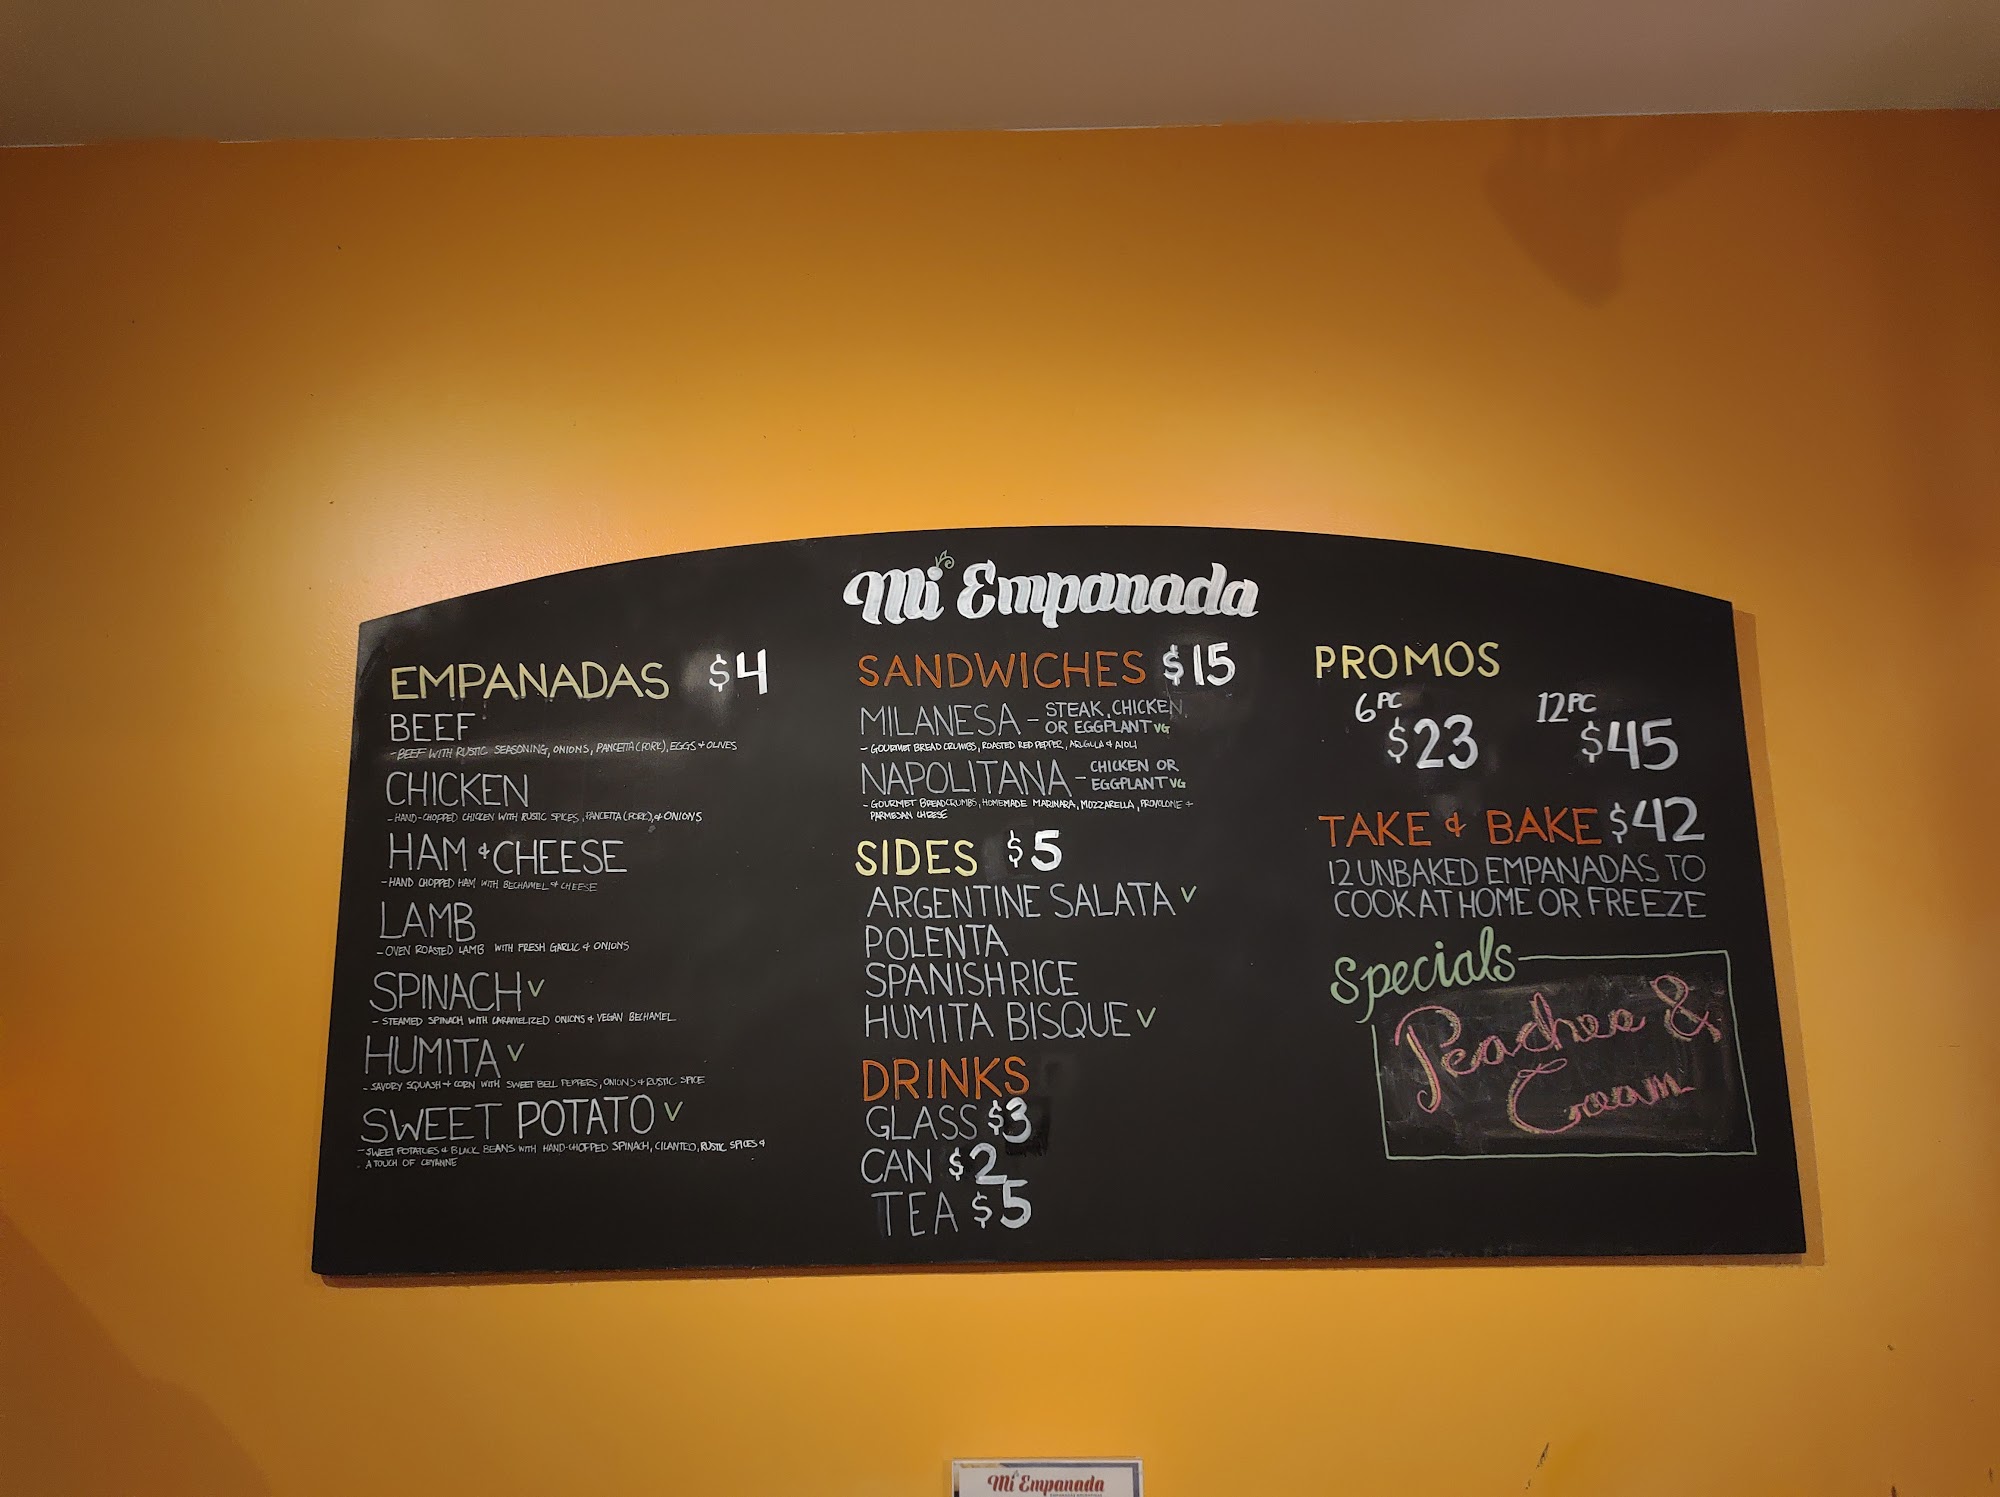 Mi Empanada
EMPANADAS $4
BEEF
- BEEF WITH RUSTIC SEASONING, ONIONS, PANCETTA (PORK), EGGS & OLIVES
CHICKEN
- HAND-CHOPPED CHICKEN WITH RUSTIC SPICES, PANCETTA (PORK), & ONIONS
HAM & CHEESE
- HAND CHOPPED HAM WITH BECHAMEL & CHEESE
LAMB
- OVEN ROASTED LAMB WITH FRESH GARLIC & ONIONS
SPINACH V
- STEAMED SPINACH WITH CARAMELIZED ONIONS & VEGAN BECHAMEL
HUMITA V
- SAVORY SQUASH & CORN WITH SWEET BELL PEPPERS, ONIONS & RUSTIC SPICE
SWEET POTATO V
- SWEET POTATOES & BLACK BEANS WITH HAND-CHOPPED SPINACH, CILANTRO, RUSTIC SPICES &
A TOUCH OF CEYANNE
SANDWICHES $15
MILANESA - STEAK, CHICKEN,
OR EGGPLANT VG
- GOURMET BREAD CRUMBS, ROASTED RED PEPPER, ARUGULA & AIOLI
NAPOLITANA - CHICKEN OR
EGGPLANT VG
- GOURMET BREADCRUMBS, HOMEMADE MARINARA, MOZZARELLA, PROVOLONE &
PARMESAN CHEESE
SIDES $5
ARGENTINE SALATA V
POLENTA
SPANISH RICE
HUMITA BISQUE V
DRINKS
GLASS $3
CAN $2
TEA $5
PROMOS
6PC 12PC
$23 $45
TAKE & BAKE $42
12 UNBAKED EMPANADAS TO
COOK AT HOME OR FREEZE
Specials
Peaches &
Cream
Mi Empanada